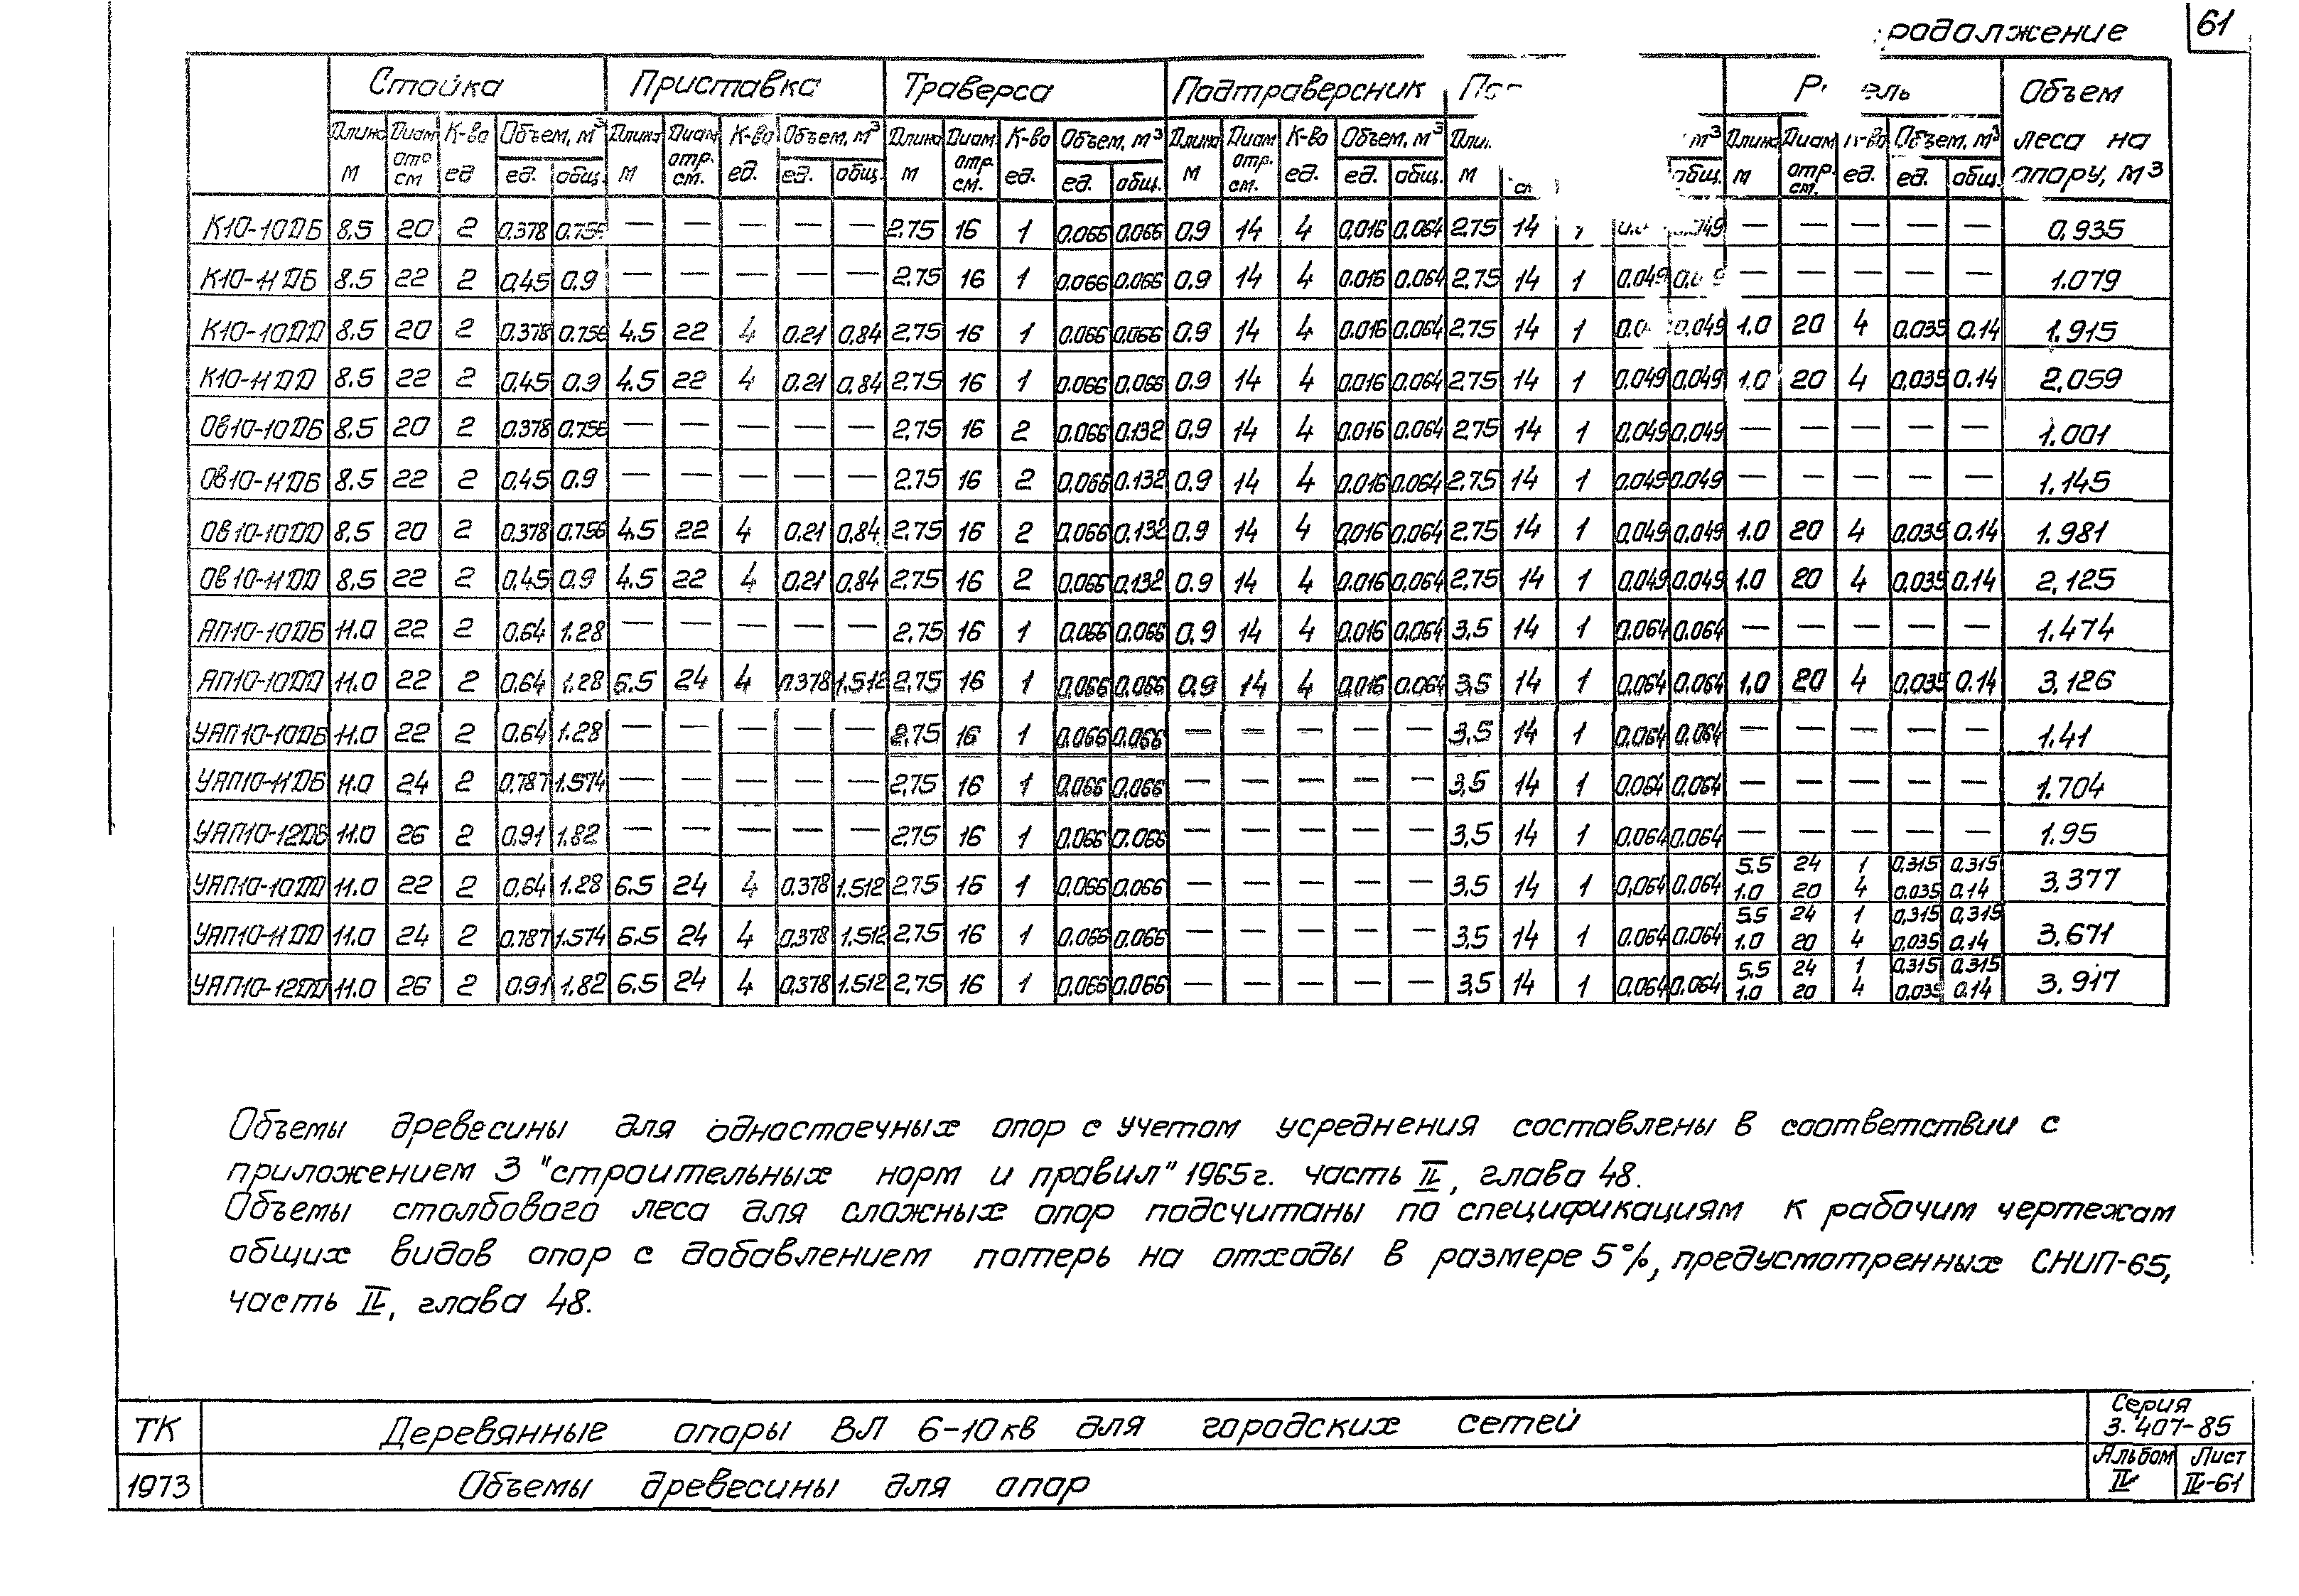 родолжение 61
Стойка Приставка Траверса Подтраверсник Объем
Длина Диам К-во Объем, м³ Длина Диам К-во Объем, м³ Длина Диам. К-во Объем, м³ Длина Диам К-во Объем, м³ м³ Длина Диам К-во Объем, м³ леса на
м отр см ед ед. общ. м отр. см. ед. ед. общ. м отр. см. ед. ед. общ. м отр. см. ед. ед. общ. м общ. м отр. см. ед. ед. общ. опору, м³
К10-10ДБ 8.5 20 2 0.378 0.756 — — — — — 2.75 16 1 0.066 0.066 0.9 14 4 0.016 0.064 2.75 14 — — — — — 0.935
К10-11ДБ 8.5 22 2 0.45 0.9 — — — — — 2.75 16 1 0.066 0.066 0.9 14 4 0.016 0.064 2.75 14 1 0.049 — — — — — 1.079
К10-10ДД 8.5 20 2 0.378 0.756 4.5 22 4 0.21 0.84 2.75 16 1 0.066 0.066 0.9 14 4 0.016 0.064 2.75 14 1 0.049 1.0 20 4 0.035 0.14 1.915
К10-11ДД 8.5 22 2 0.45 0.9 4.5 22 4 0.21 0.84 2.75 16 1 0.066 0.066 0.9 14 4 0.016 0.064 2.75 14 1 0.049 0.049 1.0 20 4 0.035 0.14 2.059
Ов10-10ДБ 8.5 20 2 0.378 0.756 — — — — — 2.75 16 2 0.066 0.132 0.9 14 4 0.016 0.064 2.75 14 1 0.049 0.049 — — — — — 1.001
Ов10-11ДБ 8.5 22 2 0.45 0.9 — — — — — 2.75 16 2 0.066 0.132 0.9 14 4 0.016 0.064 2.75 14 1 0.049 0.049 — — — — — 1.145
Ов10-10ДД 8.5 20 2 0.378 0.756 4.5 22 4 0.21 0.84 2.75 16 2 0.066 0.132 0.9 14 4 0.016 0.064 2.75 14 1 0.049 0.049 1.0 20 4 0.035 0.14 1.981
Ов10-11ДД 8.5 22 2 0.45 0.9 4.5 22 4 0.21 0.84 2.75 16 2 0.066 0.132 0.9 14 4 0.016 0.064 2.75 14 1 0.049 0.049 1.0 20 4 0.035 0.14 2.125
АП10-10ДБ 11.0 22 2 0.64 1.28 — — — — — 2.75 16 1 0.066 0.066 0.9 14 4 0.016 0.064 3.5 14 1 0.064 0.064 — — — — — 1.474
АП10-10ДД 11.0 22 2 0.64 1.28 6.5 24 4 0.378 1.512 2.75 16 1 0.066 0.066 0.9 14 4 0.016 0.064 3.5 14 1 0.064 0.064 1.0 20 4 0.035 0.14 3.126
УАП10-10ДБ 11.0 22 2 0.64 1.28 — — — — — 2.75 16 1 0.066 0.066 — — — — — 3.5 14 1 0.064 0.064 — — — — — 1.41
УАП10-11ДБ 11.0 24 2 0.787 1.574 — — — — — 2.75 16 1 0.066 0.066 — — — — — 3.5 14 1 0.064 0.064 — — — — — 1.704
УАП10-12ДБ 11.0 26 2 0.91 1.82 — — — — — 2.75 16 1 0.066 0.066 — — — — — 3.5 14 1 0.064 0.064 — — — — — 1.95
5.5 24 1 0.315 0.315
УАП10-10ДД 11.0 22 2 0.64 1.28 6.5 24 4 0.378 1.512 2.75 16 1 0.066 0.066 — — — — — 3.5 14 1 0.064 0.064 1.0 20 4 0.035 0.14 3.377
5.5 24 1 0.315 0.315
УАП10-11ДД 11.0 24 2 0.787 1.574 6.5 24 4 0.378 1.512 2.75 16 1 0.066 0.066 — — — — — 3.5 14 1 0.064 0.064 1.0 20 4 0.035 0.14 3.671
5.5 24 1 0.315 0.315
УАП10-12ДД 11.0 26 2 0.91 1.82 6.5 24 4 0.378 1.512 2.75 16 1 0.066 0.066 — — — — — 3.5 14 1 0.064 0.064 1.0 20 4 0.035 0.14 3.917
Объемы древесины для одностоечных опор с учетом усреднения составлены в соответствии с
приложением 3 "строительных норм и правил" 1965г. часть II, глава 48.
Объемы столбового леса для сложных опор подсчитаны по спецификациям к рабочим чертежам
общих видов опор с добавлением потерь на отходы в размере 5%, предусмотренных СНИП-65,
часть II, глава 48.
ТК Деревянные опоры ВЛ 6-10кв для городских сетей Серия 3.407-85
1973 Объемы древесины для опор Альбом II Лист II-61